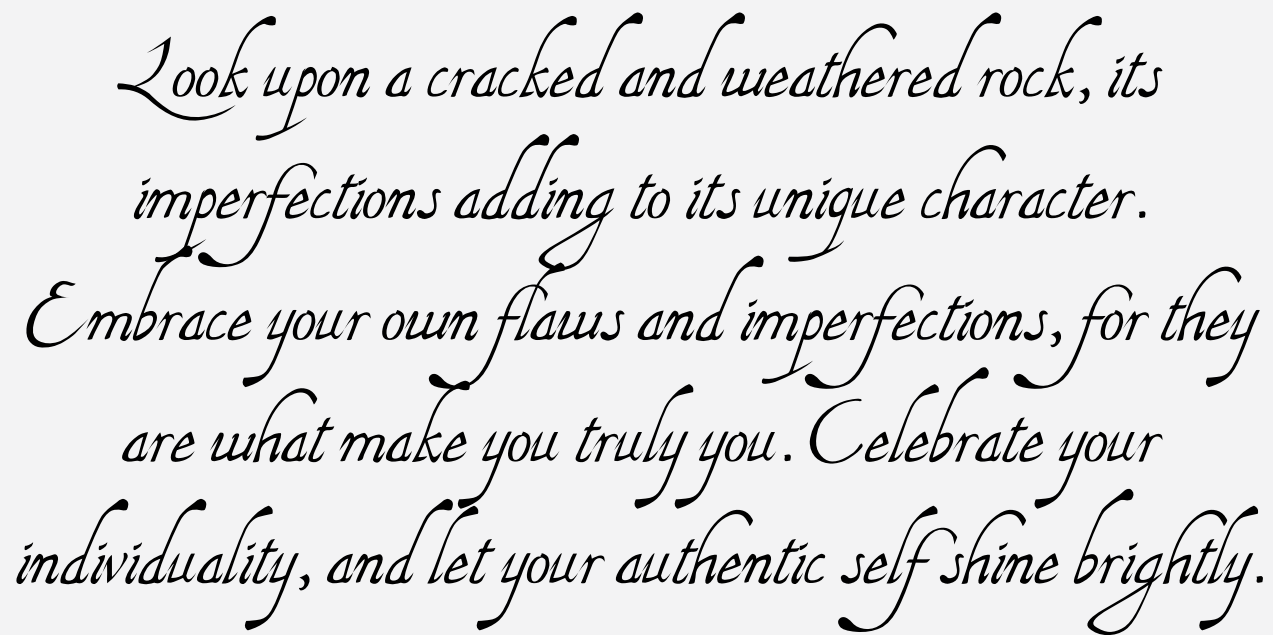 Look upon a cracked and weathered rock, its
imperfections adding to its unique character.
Embrace your own flaws and imperfections, for they
are what make you truly you. Celebrate your
individuality, and let your authentic self shine brightly.